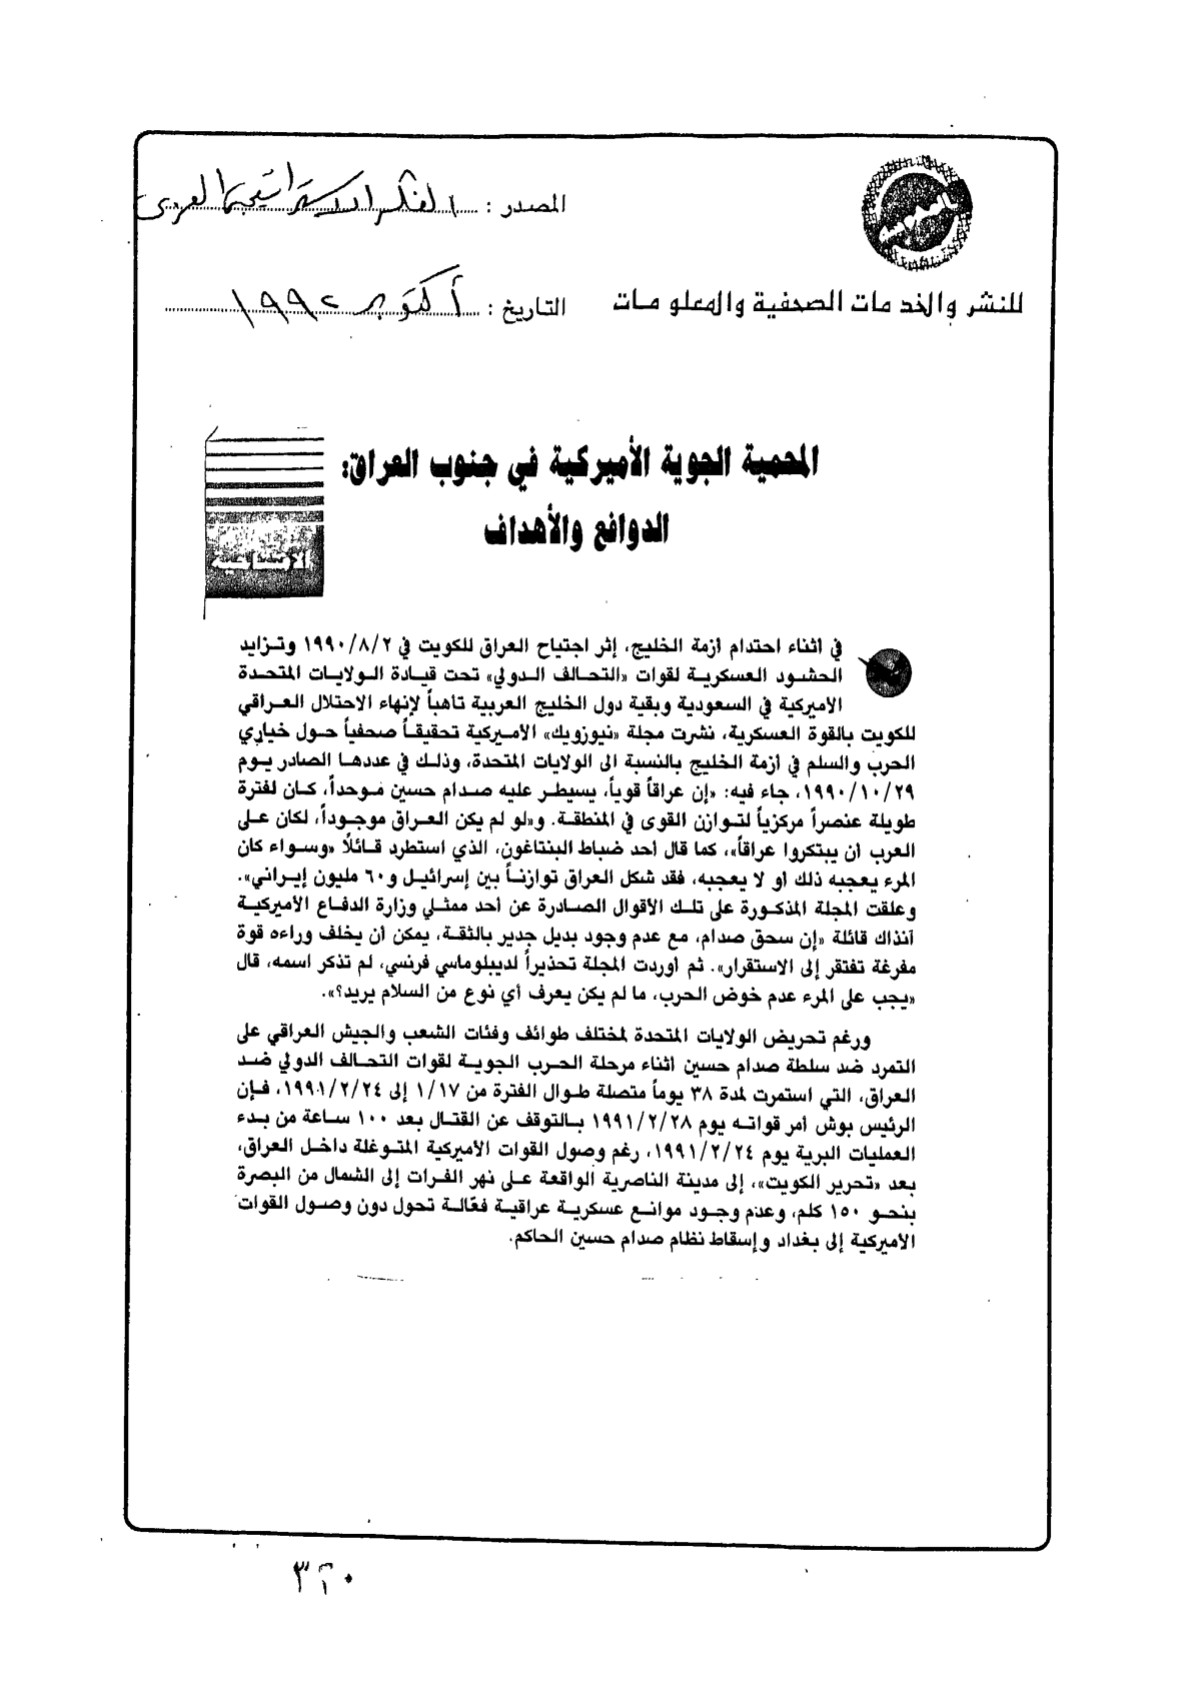 المصدر : الفكر الاستراتيجي العربي
للنشر والخدمات الصحفية والمعلومات
التاريخ : أكتوبر ١٩٩٢
المحمية الجوية الأميركية في جنوب العراق:
الدوافع والأهداف
الافتتاحية
في اثناء احتدام ازمة الخليج، إثر اجتياح العراق للكويت في ١٩٩٠/٨/٢ وتزايد
الحشود العسكرية لقوات «التحالف الدولي» تحت قيادة الولايات المتحدة
الاميركية في السعودية وبقية دول الخليج العربية تاهباً لإنهاء الاحتلال العراقي
للكويت بالقوة العسكرية، نشرت مجلة «نيوزويك» الاميركية تحقيقاً صحفياً حول خياري
الحرب والسلم في ازمة الخليج بالنسبة الى الولايات المتحدة، وذلك في عددها الصادر يوم
١٩٩٠/١٠/٢٩، جاء فيه: «إن عراقاً قوياً، يسيطر عليه صدام حسين موحداً، كان لفترة
طويلة عنصراً مركزياً لتوازن القوى في المنطقة. و«لو لم يكن العراق موجوداً، لكان على
العرب ان يبتكروا عراقاً»، كما قال أحد ضباط البنتاغون، الذي استطرد قائلًا «وسواء كان
المرء يعجبه ذلك او لا يعجبه، فقد شكل العراق توازناً بين إسرائيل و٦٠ مليون إيراني».
وعلقت المجلة المذكورة على تلك الاقوال الصادرة عن احد ممثلي وزارة الدفاع الاميركية
آنذاك قائلة «إن سحق صدام، مع عدم وجود بديل جدير بالثقة، يمكن أن يخلف وراءه قوة
مفرغة تفتقر إلى الاستقرار». ثم اوردت المجلة تحذيراً لديبلوماسي فرنسي، لم تذكر اسمه، قال
«يجب على المرء عدم خوض الحرب، ما لم يكن يعرف أي نوع من السلام يريد؟».
ورغم تحريض الولايات المتحدة لمختلف طوائف وفئات الشعب والجيش العراقي على
التمرد ضد سلطة صدام حسين اثناء مرحلة الحرب الجوية لقوات التحالف الدولي ضد
العراق، التي استمرت لمدة ٣٨ يوماً متصلة طوال الفترة من ١/١٧ إلى ١٩٩١/٢/٢٤، فإن
الرئيس بوش أمر قواته يوم ١٩٩١/٢/٢٨ بالتوقف عن القتال بعد ١٠٠ ساعة من بدء
العمليات البرية يوم ١٩٩١/٢/٢٤، رغم وصول القوات الأميركية المتوغلة داخل العراق،
بعد «تحرير الكويت»، إلى مدينة الناصرية الواقعة على نهر الفرات إلى الشمال من البصرة
بنحو ١٥٠ كلم، وعدم وجود موانع عسكرية عراقية فعّالة تحول دون وصول القوات
الاميركية إلى بغداد وإسقاط نظام صدام حسين الحاكم.